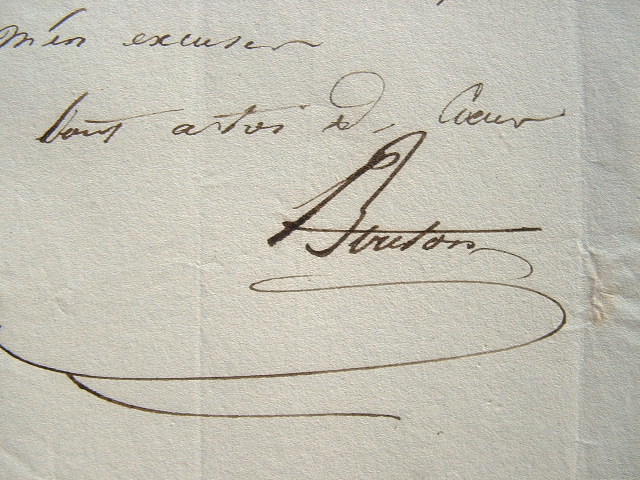 m'en excuser
tout à toi de Cœur
Bouton